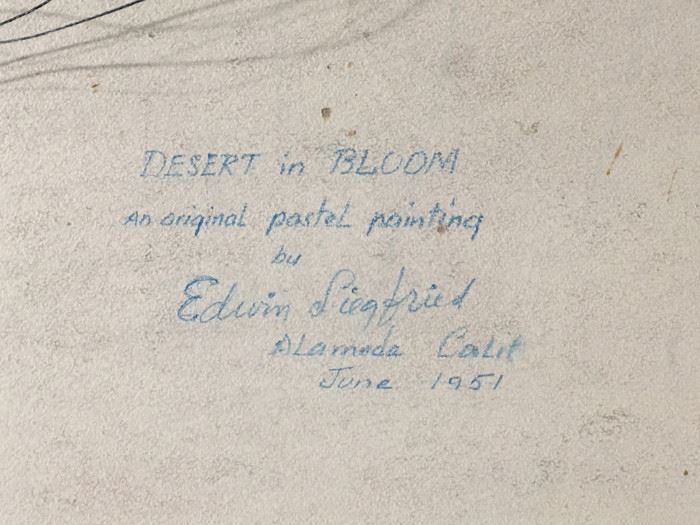 DESERT in BLOOM
An original pastel painting
by
Edwin Siegfried
Alameda Calif
June 1951